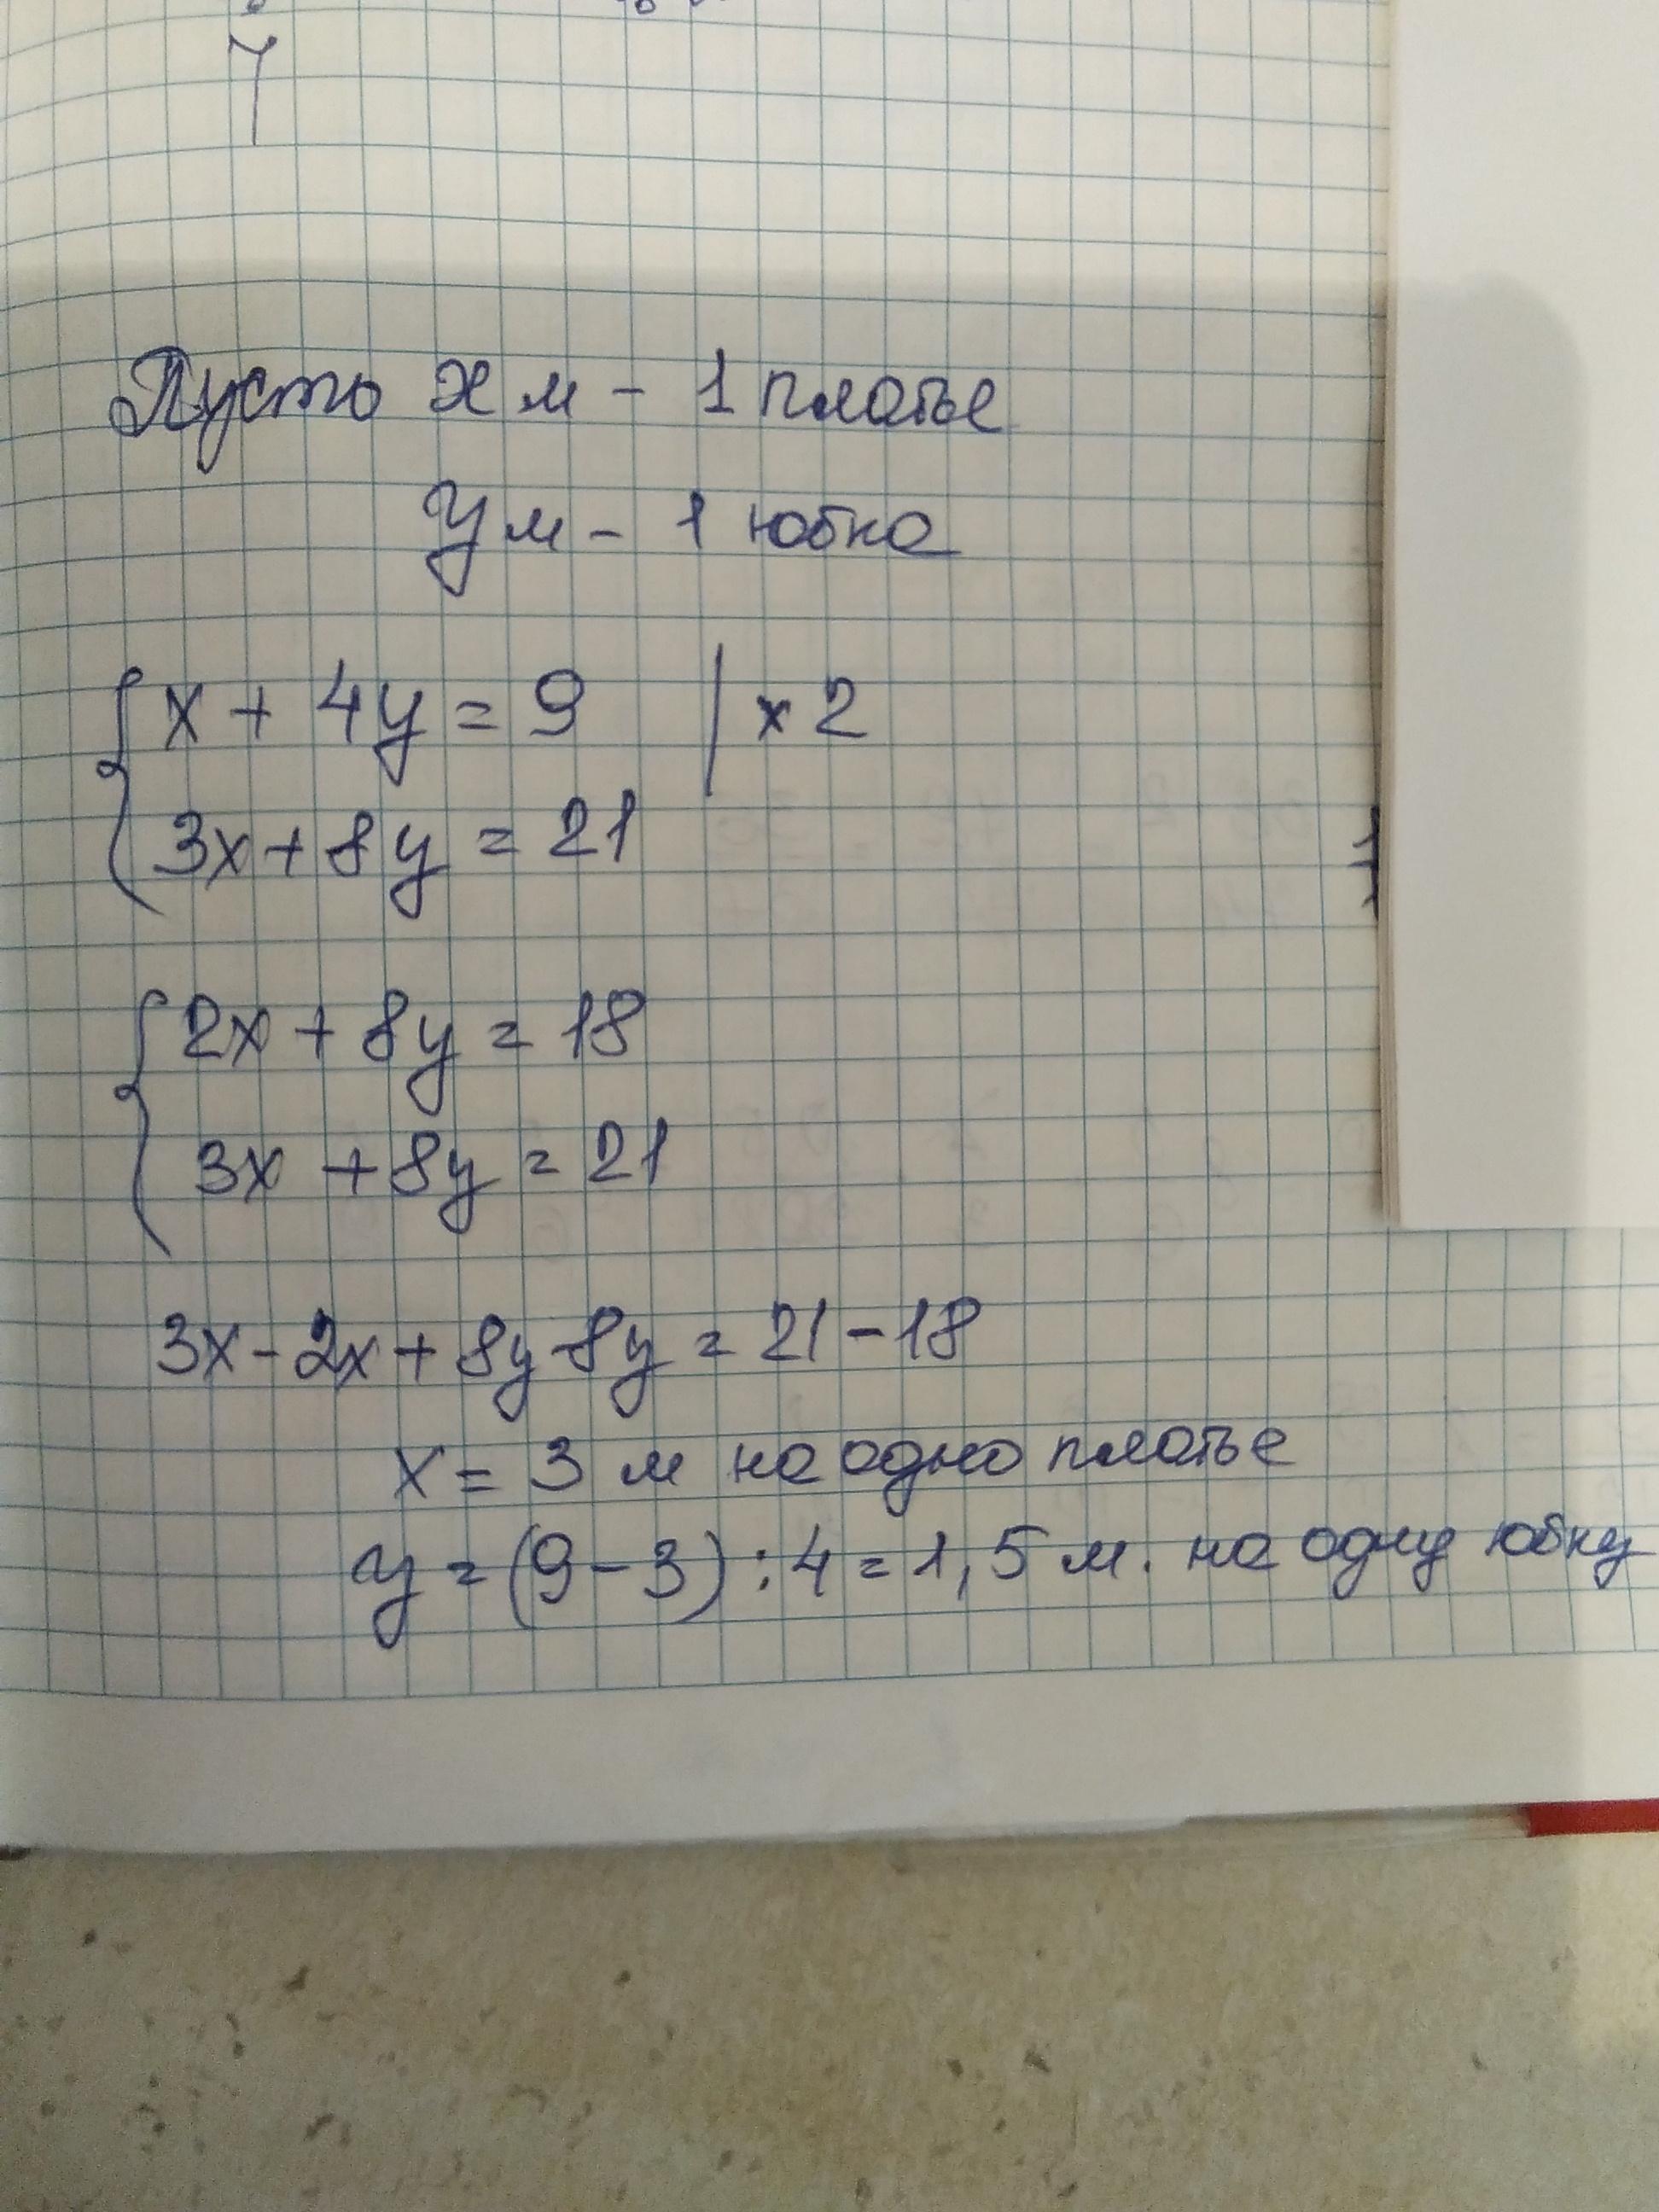 7
Пусть x м - 1 платье
y м - 1 юбка
{ x + 4y = 9 | × 2
3x + 8y = 21
{ 2x + 8y = 18
3x + 8y = 21
3x - 2x + 8y - 8y = 21 - 18
x = 3 м на одно платье
y = (9 - 3) : 4 = 1,5 м. на одну юбку